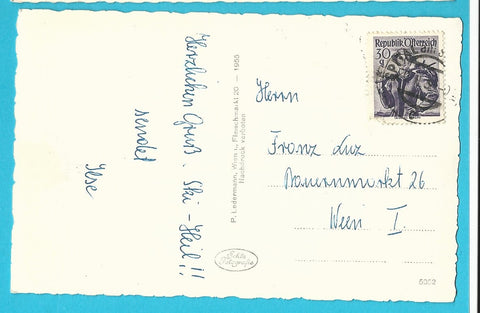 Herzlichen Gruß. Ski-Heil!!
sendet
Ilse
P. Ledermann, Wien I., Fleischmarkt 20 — 1955
Nachdruck verboten
Echte
Fotografie
Republik Österreich
30
g
Herrn
Franz Luz
Bauernmarkt 26
Wien I.
5002